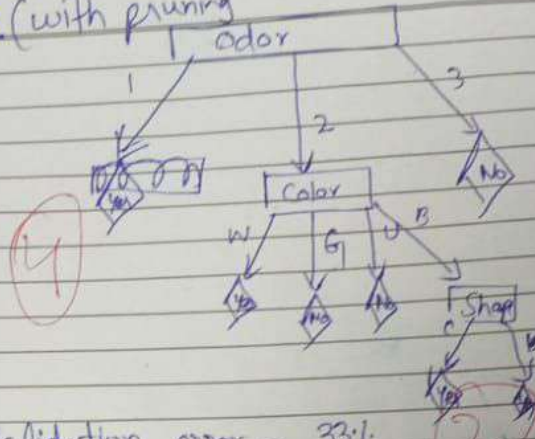 (with pruning
Odor
1 2 3
Yes
No
Color
W G U B
Yes No No
Shap
C
Yes
4
error 33%